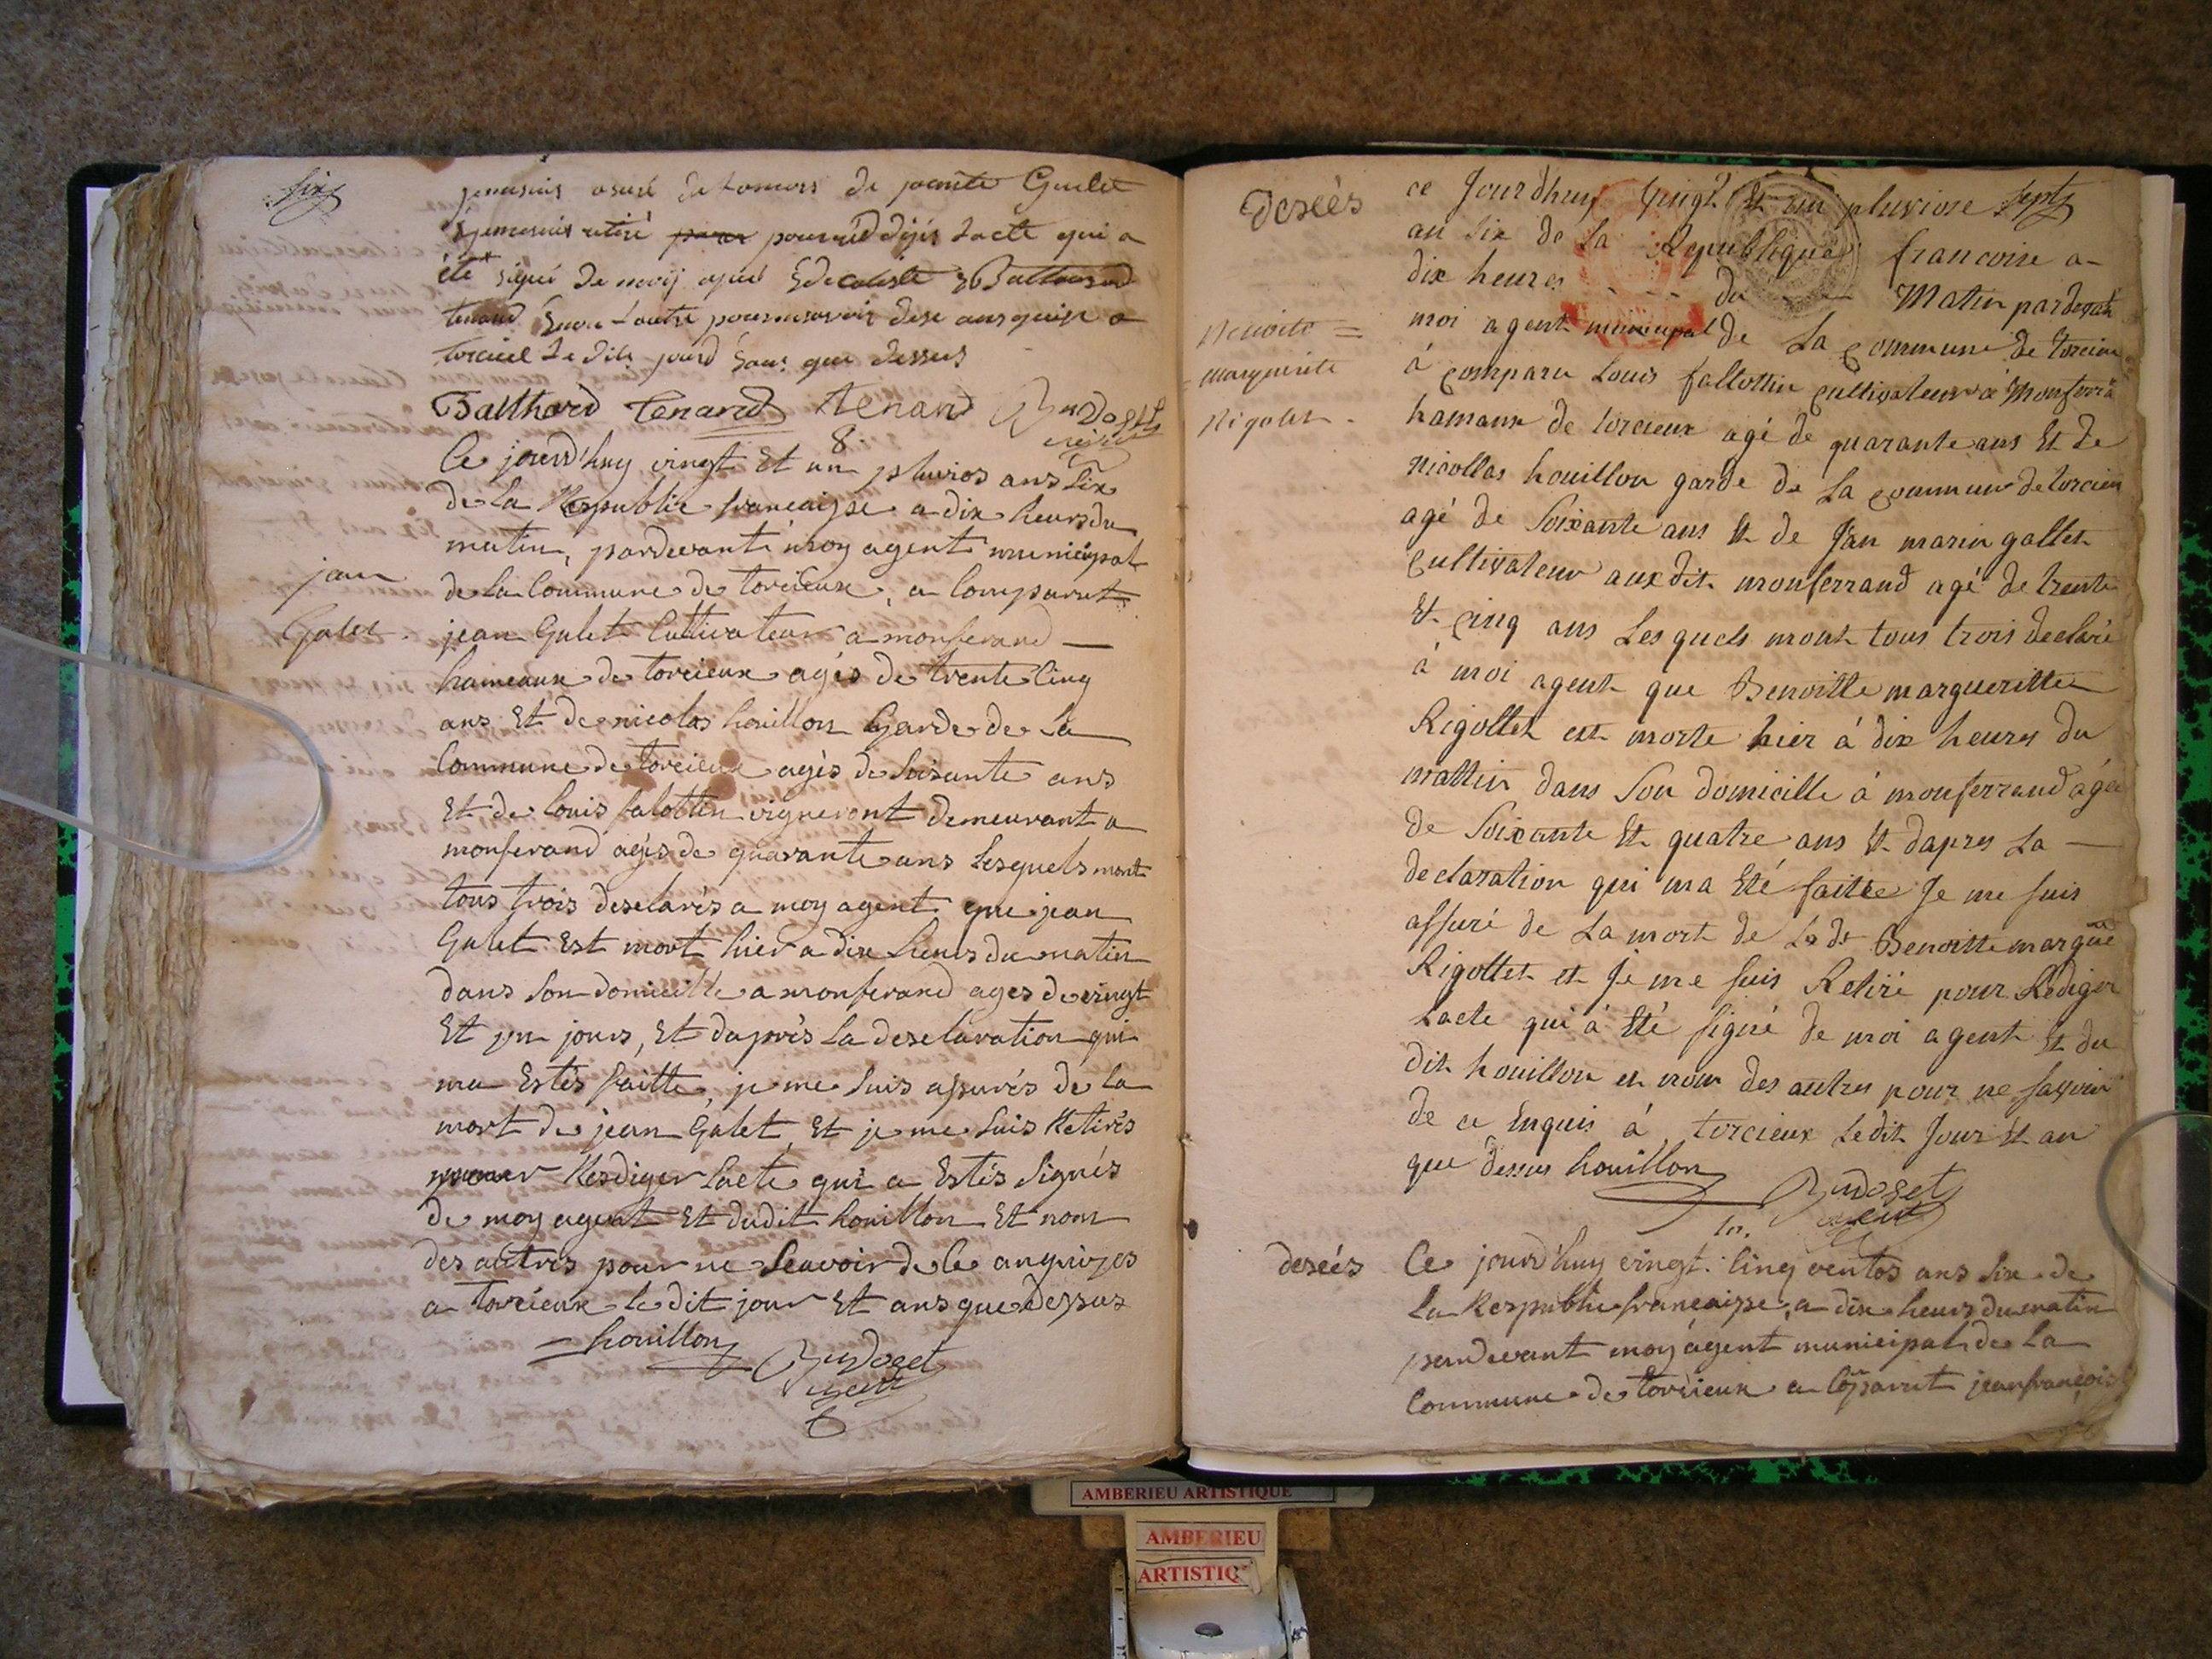 six
jemesuis asuré de lamors de Gulet
jemesuis retiré pour rédigés lacte qui a
été signé de moij
tenand
torcieu le dit jour que dessus
Balthard Tenand Tenand Burdoset
agent
8.
Ce jourd'huy vingt Et un pluvios ans Six
de la Respublic francaisse a dix heurs du
matin, pardevant moy agent municipal
de la Commune de torcieux, a Comparut
jean
Galet
jean Galet Cultivateur a monferand
hameaux de torcieux agés de trente Cinq
ans Et de nicolas houillon Garde de La
Commune de torcieux agés de Soisante ans
Et de louis falottin vigneront demeurant a
monferand agés de quarante ans Lesquels mont
tous trois desclarés a moy agent que jean
Galet Est mort hier a dix heurs du matin
dans Son domicille a monferand ages de vingt
Et un jours, Et daprès La desclaration qui
ma Estés faitte, je me Suis asurés de la
mort de jean Galet, Et je me Suis Retirés
pour Resdiger Lacte qui a Estés Signés
de moy agent Et dudit houillon Et nom
des autres pour ne Scavoir de Ce anquizes
a torcieux le dit jour Et ans que dessus
houillon Burdoset
agent
desces
ce Jourdhuy vingt Et un pluviose sept
an six de La Republique francoise a
dix heures du Matin pardevant
moi agent municipal de La Commune de torcieu
Benoite =
marguerite
Rigolet
à comparu Louis fallottin cultivateur à Monferra
hamaux de torcieux agé de quarante ans Et de
nicollas houillon garde de La commune de torcieu
agé de Soixante ans Et de Jan marin gallet
cultivateur audit monferrand agé de trente
Et cinq ans Les quels mont tous trois declaré
à moi agent que Benoitte margueritte
Rigollet est morte hier à dix heures du
mattin dans Son domicille à monferrand agée
de Soixante Et quatre ans Et dapres La
declaration qui ma Eté faitte Je me suis
assuré de La mort de La de Benoitte margue
Rigollet et Je me suis Retiré pour Rediger
Lacte qui à Eté signé de moi agent Et du
dit houillon et nom des autres pour ne savoir
de ce Enquis à torcieux Ledit Jour Et an
que dessus houillon Burdoset
agent
10.
desces
Ce jourd'huy vingt Cinq ventos ans Six de
La Respublic francaisse, a dix heurs du matin
pardevant moy agent municipal de La
Commune de torcieux a Coparut jean francois
AMBERIEU ARTISTIQUE
AMBERIEU
ARTISTIQ